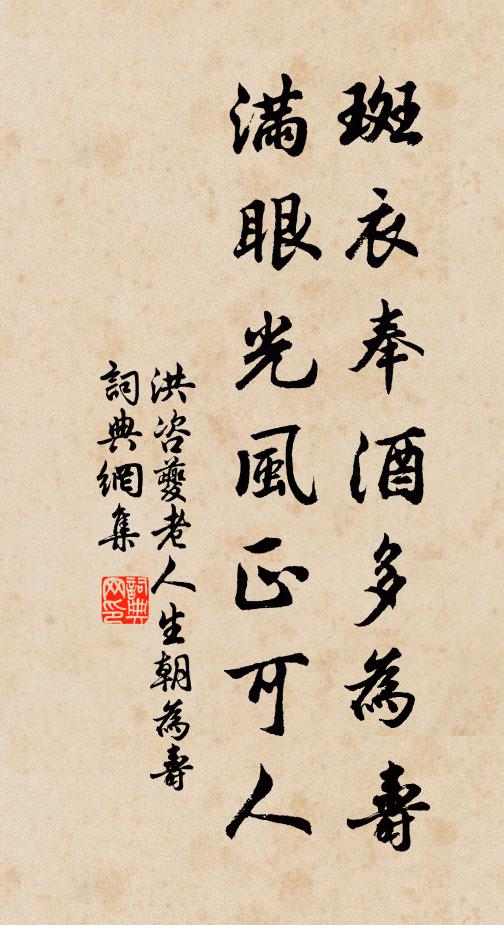 斑衣奉酒多為壽
滿眼光風正可人
洪咨夔老人生朝為壽
詞典網集
詞典
网印